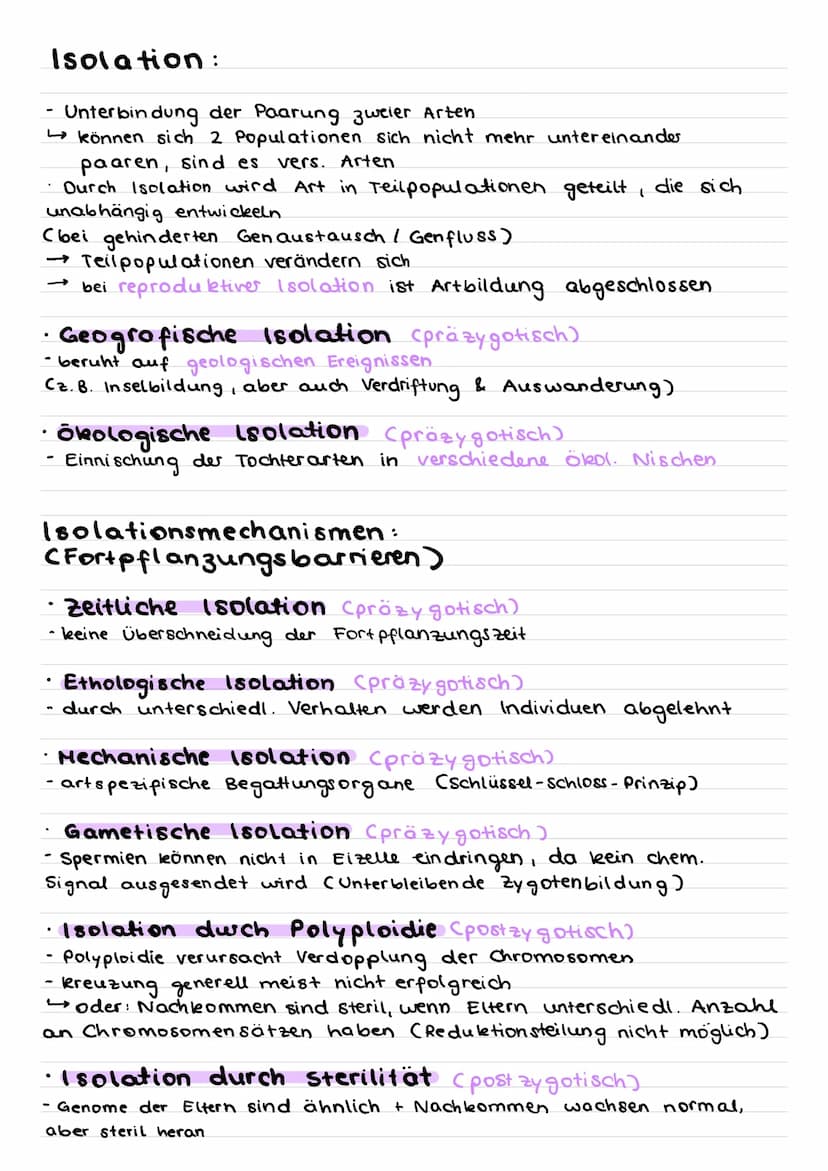 Isolation:
- Unterbindung der Paarung zweier Arten
↳ können sich 2 Populationen sich nicht mehr untereinander
paaren, sind es vers. Arten
· Durch Isolation wird Art in Teilpopulationen geteilt, die sich
unabhängig entwickeln
(bei gehinderten Genaustausch / Genfluss)
→ Teilpopulationen verändern sich
→ bei reproduktiver Isolation ist Artbildung abgeschlossen
· Geografische Isolation (präzygotisch)
- beruht auf geologischen Ereignissen
(z.B. Inselbildung, aber auch Verdriftung & Auswanderung)
· Ökologische Isolation (präzygotisch)
- Einnischung der Tochterarten in verschiedene ökol. Nischen
Isolationsmechanismen:
(Fortpflanzungsbarrieren)
· Zeitliche Isolation (präzygotisch)
- keine Überschneidung der Fortpflanzungszeit
· Ethologische Isolation (präzygotisch)
- durch unterschiedl. Verhalten werden Individuen abgelehnt
· Mechanische Isolation (präzygotisch)
- artspezifische Begattungsorgane (Schlüssel-Schloss-Prinzip)
· Gametische Isolation (präzygotisch)
- Spermien können nicht in Eizelle eindringen, da kein chem.
Signal ausgesendet wird (Unterbleibende Zygotenbildung)
· Isolation durch Polyploidie (postzygotisch)
- Polyploidie verursacht Verdopplung der Chromosomen
- Kreuzung generell meist nicht erfolgreich
↳ oder: Nachkommen sind steril, wenn Eltern unterschiedl. Anzahl
an Chromosomensätzen haben (Reduktionsteilung nicht möglich)
· Isolation durch Sterilität (postzygotisch)
- Genome der Eltern sind ähnlich + Nachkommen wachsen normal,
aber steril heran